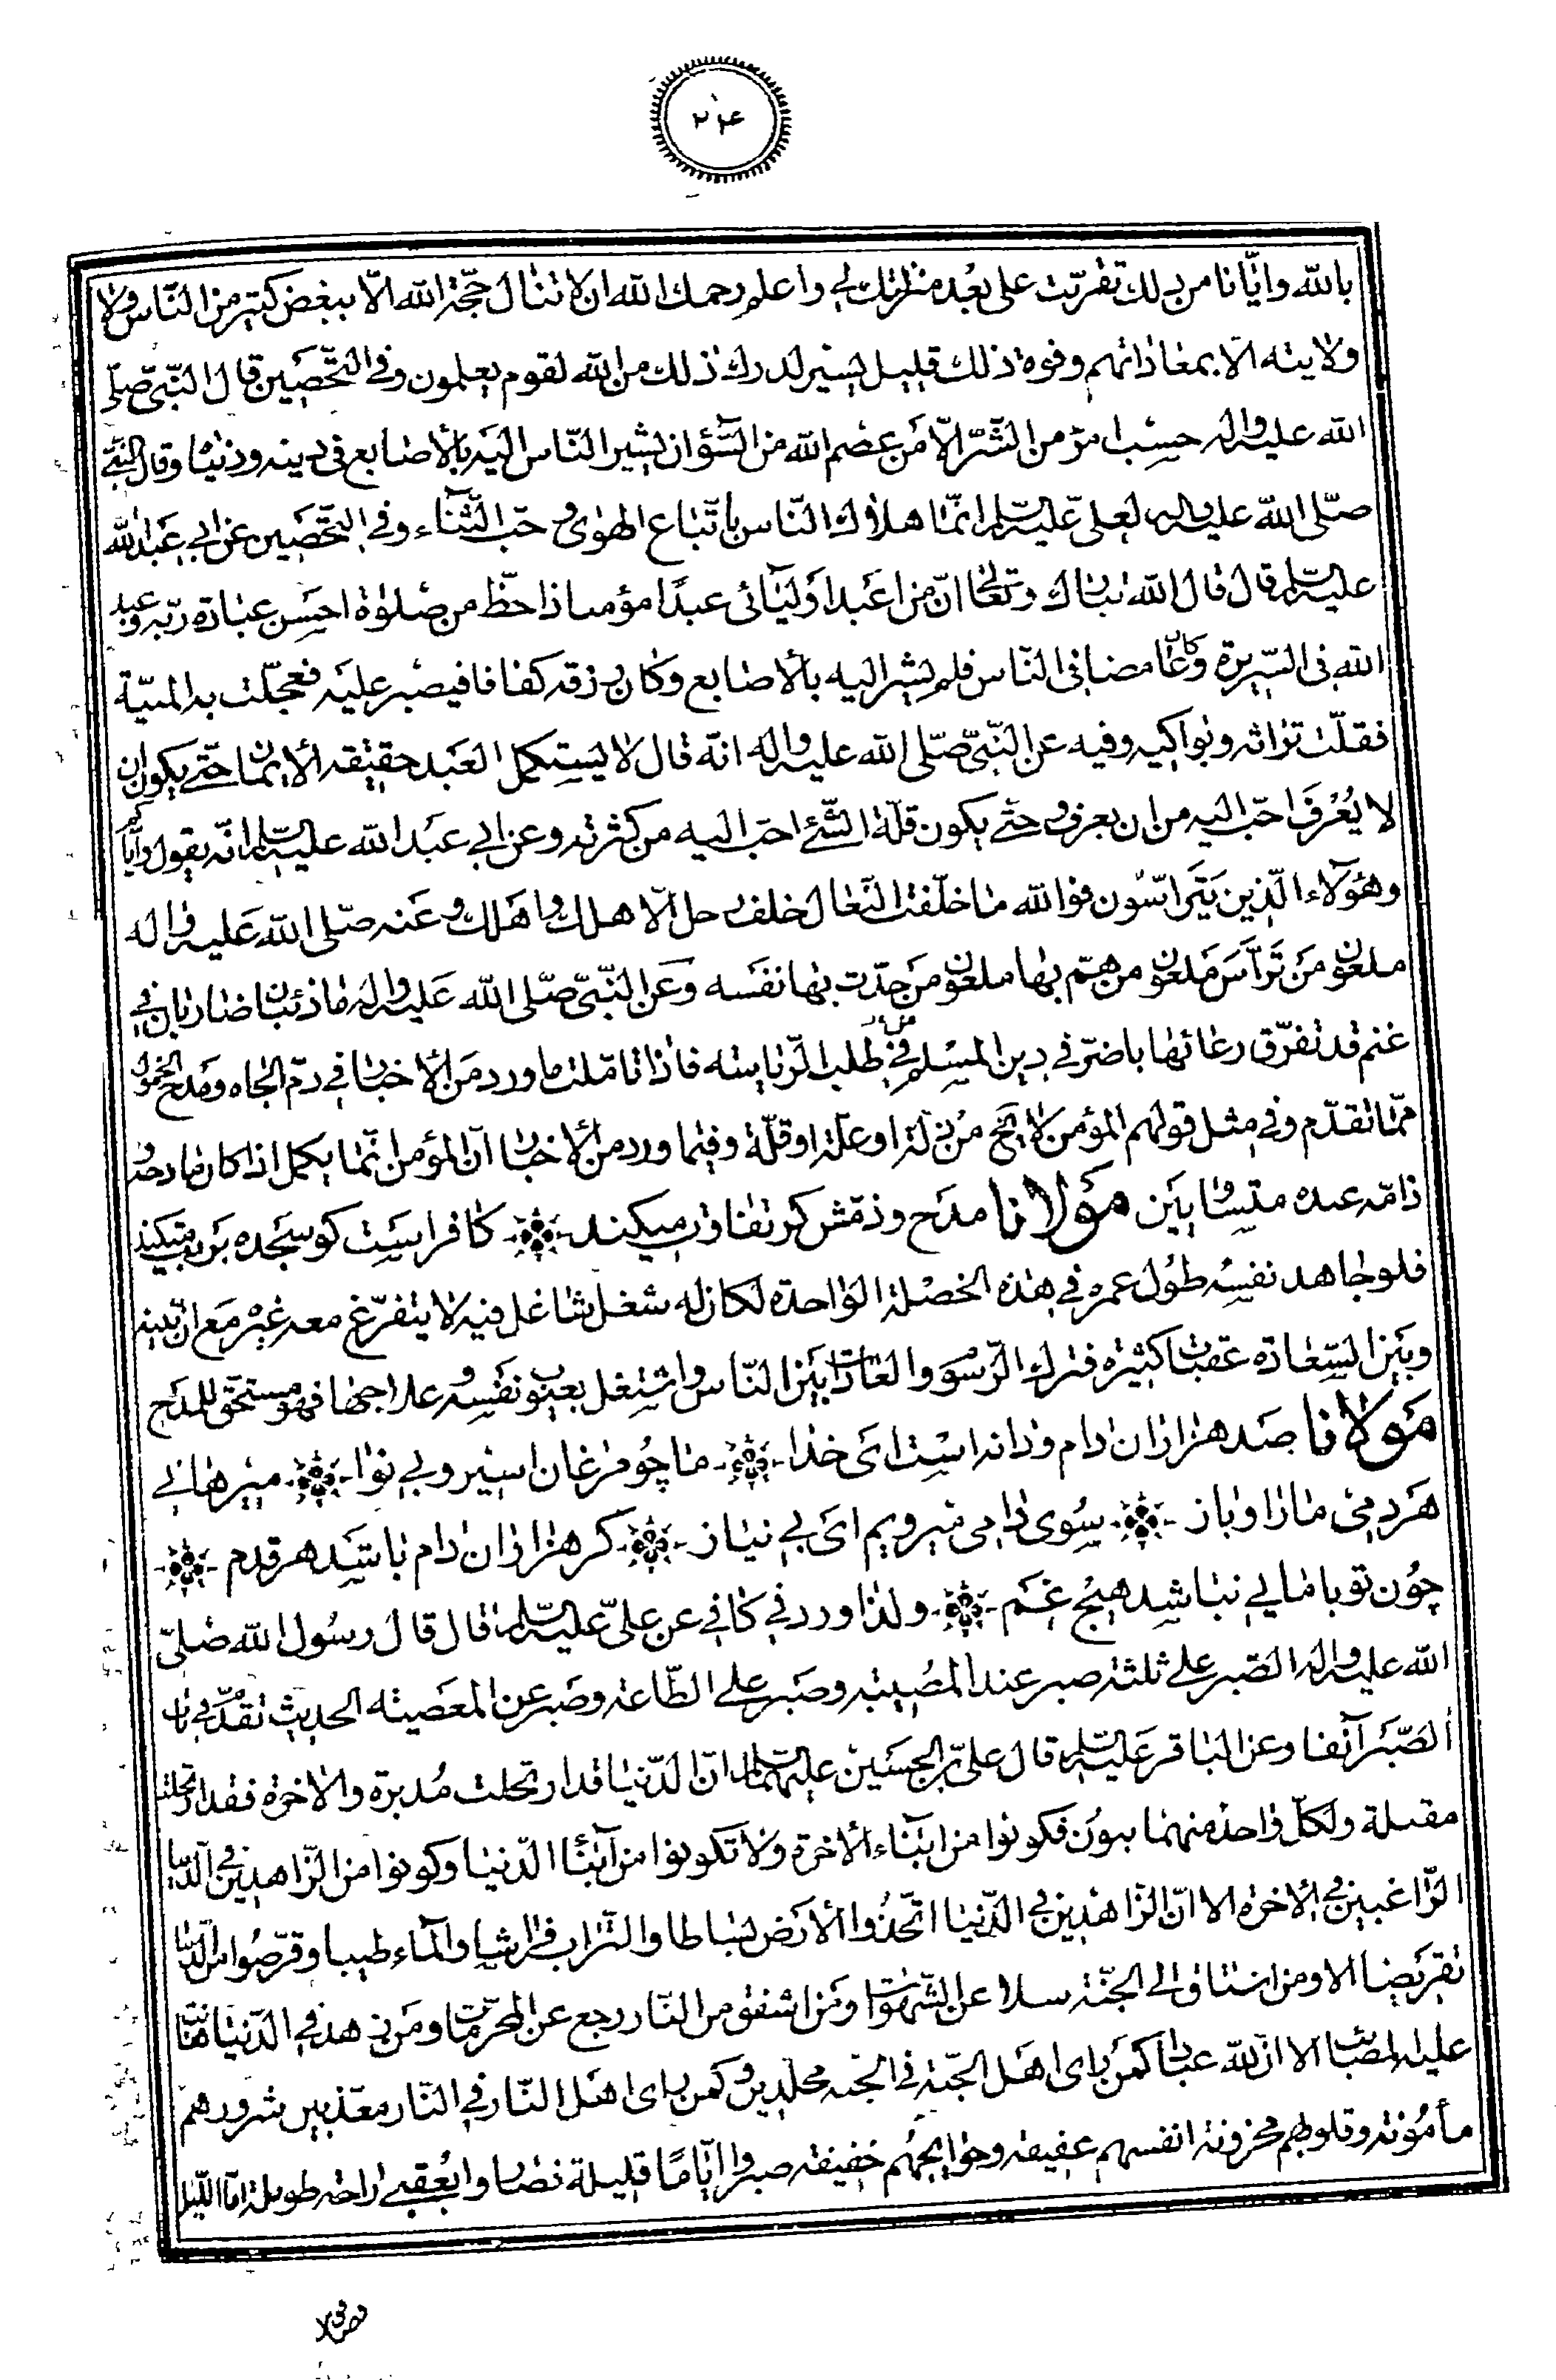 ۲۲۴
بالله وايّانا من ذلك تقرّبت على بُعد منزلتك لى واعلم رحمك الله ان لا تنال حجّة الله الّا ببغض كثير من النّاس ولا
ولايته الّا بمعاداتهم وفوة ذلك قليل يسير لدرك ذلك من الله لقوم يعلمون وفى التّحصين قال النّبىّ صلّى
الله عليه واله حسب امرء من الشّرّ الّا من عصم الله من السّؤ ان يشير النّاس اليه بالأصابع فى دينه ودنياه وقال النبىّ
صلّى الله عليه واله لعلى عليه السّلم انّما هلاك النّاس باتّباع الهوى وحبّ الثّناء وفى التّحصين عن ابى عبد الله
عليه السّلم قال قال الله تبارك وتعالى انّ من اعبد اوليائى عبدًا مؤمنا ذا حظّ من صلوة احسن عبادة ربّه وعبد
الله فى السّريرة وكان غامضا فى النّاس فلم يشر اليه بالأصابع وكان رزقه كفافا فيصبر عليه فعجّلت به المنيّة
فقلّت تراثه وبواكيه وفيه عن النّبىّ صلّى الله عليه واله انّه قال لا يستكمل العبد حقيقة الأيمان حتّى يكون ان
لا يُعْرَفَ احبّ اليه من ان يعرف وحتّى يكون قلّة الشّئ احبّ اليه من كثرته وعن ابى عبد الله عليه السّلم انّه يقول ايّاكم
وهؤلاء الّذين يترأّسون فوالله ما خلّفت النّعال خلف رجل الّا هلك واهلك وعنه صلّى الله عليه واله
ملعون من ترأّس ملعون من همّ بها ملعون من حدّث بها نفسه وعن النّبىّ صلّى الله عليه واله ما ذئبان ضاريان فى
غنم قد تفرّق رعائها باضرّ فى دين المسلم من طلب الرّياسة فاذا تامّلت ما ورد من الأخبار فى ذمّ الجاه ومدح الخمول
ممّا تقدّم وفى مثل قولهم المؤمن لا يخ من ذلّة او علّة او قلّة وفيما ورد من الأخبار انّ المؤمن انّما يكمل اذا كان مادحه و
ذامّه عنده متساويين مولانا مدح وذمّش كر تفاوت ميكند كافر است كو سجده بر بت ميكند
فلو جاهد نفسه طول عمره فى هذه الخصلة الواحدة لكان له شغل شاغل فيه لا يتفرّغ معه غيره مع انّ بينه
وبين السّعادة عقبات كثيرة فترك الرّسوم والعادات بين النّاس واشتغل بعيوب نفسه وعلاجها فهو مستحقّ للمدح
مولانا صد هزاران دام ودانه است اى خدا ما چو مرغان اسير وبى نوا ميرهانى
هر دمى ما را وباز سوى دامى ميرويم اى بى نياز كر هزاران دام باشد هر قدم
چون تو با مايى نباشد هيچ غم ولذا ورد فى كافى عن علىّ عليه السّلم قال قال رسول الله صلّى
الله عليه واله الصّبر على ثلثة صبر عند المصيبة وصبر على الطّاعة وصبر عن المعصيته الحديث تقدّم فى باب
الصّبر آنفا وعن الباقر عليه السّلم قال علىّ بن الحسين عليهما السّلم انّ الدّنيا قد ارتحلت مُدبرة والاخرة فقد ارتحلت
مقبلة ولكلّ واحد منهما بنون فكونوا من ابناء الأخرة ولا تكونوا من أبناء الدّنيا وكونوا من الزّاهدين فى الدّنيا
الرّاغبين فى الاخرة الا انّ الزّاهدين فى الدّنيا اتّخذوا الأرض بساطا والتّراب فراشا والماء طيبا وقرّضوا من الدّنيا
تقريضا الا ومن اشتاق الى الجنّة سلا عن الشّهوات ومن اشفق من النّار رجع عن المحرّمات ومن زهد فى الدّنيا هانت
عليه المصائب الا انّ لله عبادا كمن راى اهل الجنّة فى الجنّة مخلّدين وكمن راى اهل النّار فى النّار معذّبين شرورهم
مأمونة وقلوبهم محزونة انفسهم عفيفة وحوايجهُم خفيفة صبروا ايّامًا قليلة فصاروا بعُقبى راحة طويلة امّا اللّيل